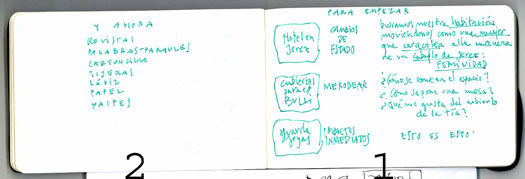 Y AHORA
REVISTAS
PALABRAS-PARAULES
CARTONCILLO
TIJERAS
LÁPIZ
PAPEL
NAIPES
2
PARA EMPEZAR
Hotel en
Jerez
CAMBIOS
DE
ESTADO
buscamos nuestra habitación
moviéndonos como una mujer
que caracolea a la manera
de un caballo de Jerez:
FEMINIDAD
Cubiertos
para el
Bulli
MERODEAR
¿Cómo se come en el espacio?
¿Cómo se pone una mesa?
¿Qué me gusta del cubierto
de la tía?
Guarda
joyas
IMPACTOS
INMEDIATOS
ESTO ES ESTO:
1